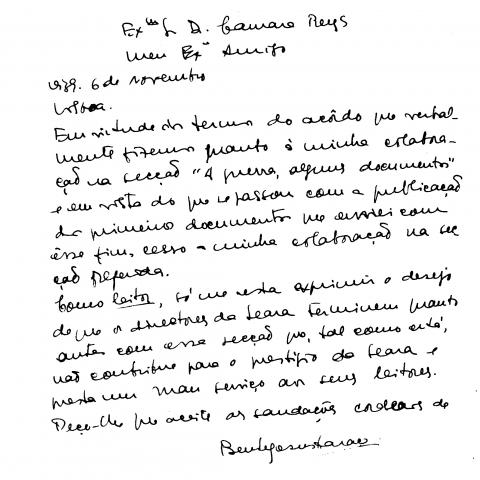 Ex.mo Sr. D. Camara Reys
Meu Ex.mo Amigo
1939. 6 de novembro
Lisboa.
Em virtude dos termos do acôrdo que verbal-
mente fizemos quanto à minha colabora-
ção na secção "A guerra, alguns documentos"
e em vista do que se passou com a publicação
do primeiro documento que enviei com
êsse fim, cesso a minha colaboração na sec
ção referida.
Como leitor, só me resta exprimir o desejo
de que os directores da Seara terminem quanto
antes com essa secção que, tal como está,
não contribue para o prestigio da Seara e
presta um mau serviço aos seus leitores.
Peço-lhe que aceite as saudações cordeais de